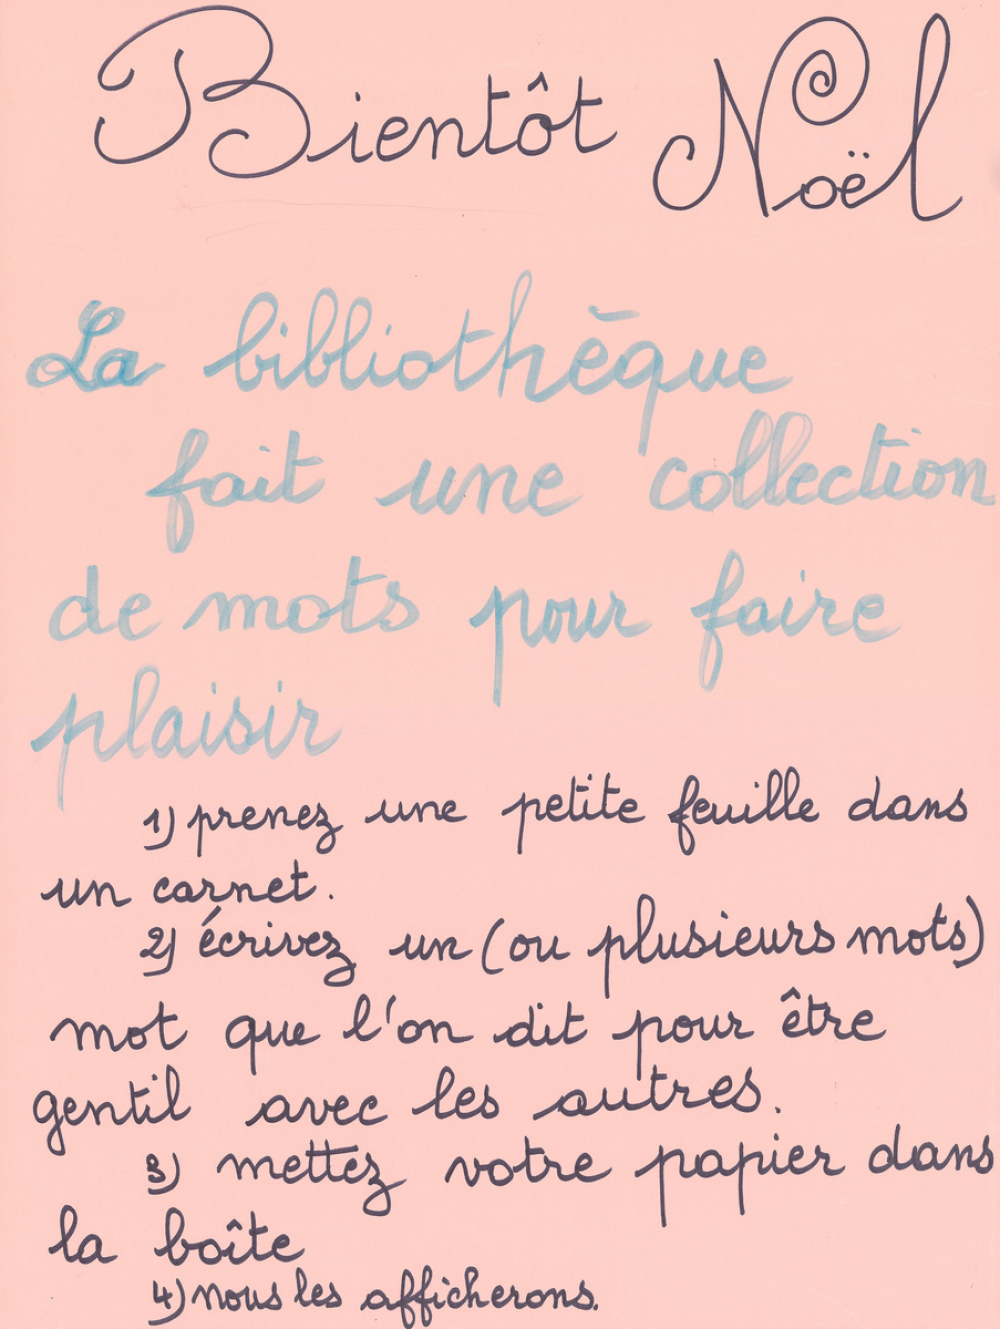 Bientôt Noël
La bibliothèque
fait une collection
de mots pour faire
plaisir
1) prenez une petite feuille dans
un carnet.
2) écrivez un (ou plusieurs mots)
mot que l'on dit pour être
gentil avec les autres.
3) mettez votre papier dans
la boîte
4) nous les afficherons.